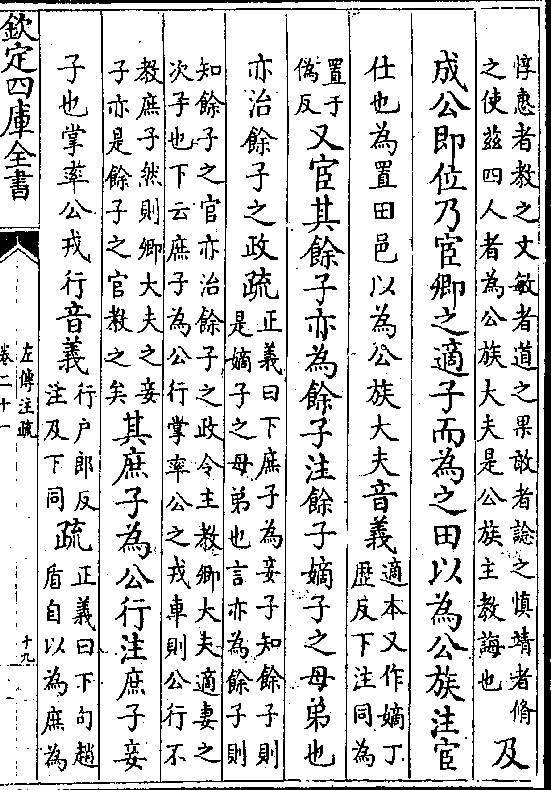 惇惠者教之文敏者道之果敢者諗之慎靖者脩
之使茲四人者為公族大夫是公族主教誨也
及
成公即位乃宦卿之適子而為之田以為公族注宦
仕也為置田邑以為公族大夫音義
適本又作嫡丁
歴反下注同為
置于
偽反
又宦其餘子亦為餘子注餘子嫡子之母弟也
亦治餘子之政疏
正義曰下庶子為妾子知餘子則
是嫡子之母弟也言亦為餘子則
知餘子之官亦治餘子之政令主教卿大夫適妻之
次子也下云庶子為公行掌率公之戎車則公行不
教庶子然則卿大夫之妾
子亦是餘子之官教之矣
其庶子為公行注庶子妾
子也掌率公戎行音義
行户郎反
注及下同
疏
正義曰下句趙
盾自以為庶為
欽定四庫全書
左傳注疏
卷二十一
十九